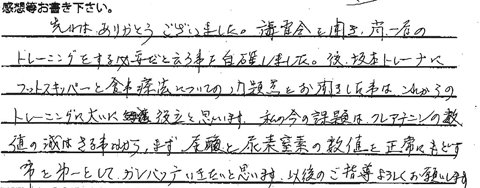 感想等お書き下さい。
先日は ありがとう ございました。講習会を聞き、尚一層の
トレーニングをする必要だと云う事を自確しました。後、坂本トレーナに
フットスキッパーと食事療法についての問題点をお聞きした事はこれからの
トレーニングに大いに 役立と思います。私の今の課題は、クレアチニンの数
値の減はきる事から、まず、尿酸と尿素窒素の数値を正常にもどす
事を第一として、ガンバッテいきたいと思います。以後のご指導よろしくお願いします